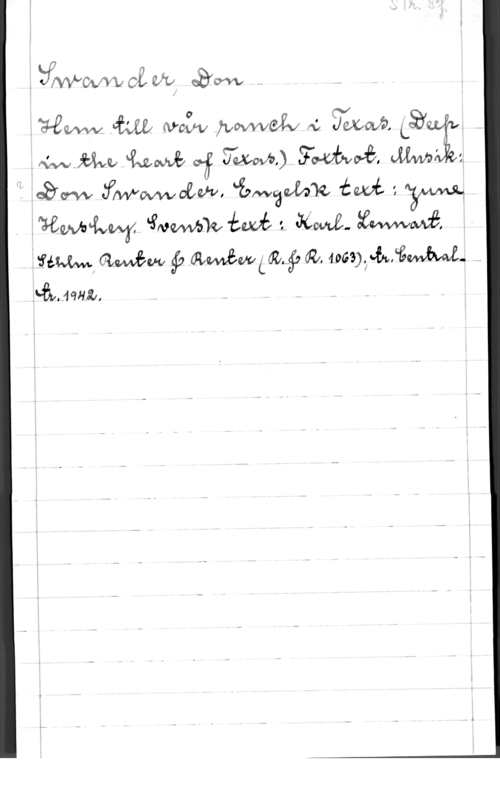 Swander, Don
Hem till vår ranch i Texas. (Deep
in the heart of Texas.) Foxtrot. Musik:
Don Swander. Engelsk text: June
Hershey. Svensk text: Karl-Lennart.
Sthlm, Reuter & Reuter (R. & R. 1063), tr. Central-
tr. 1942.